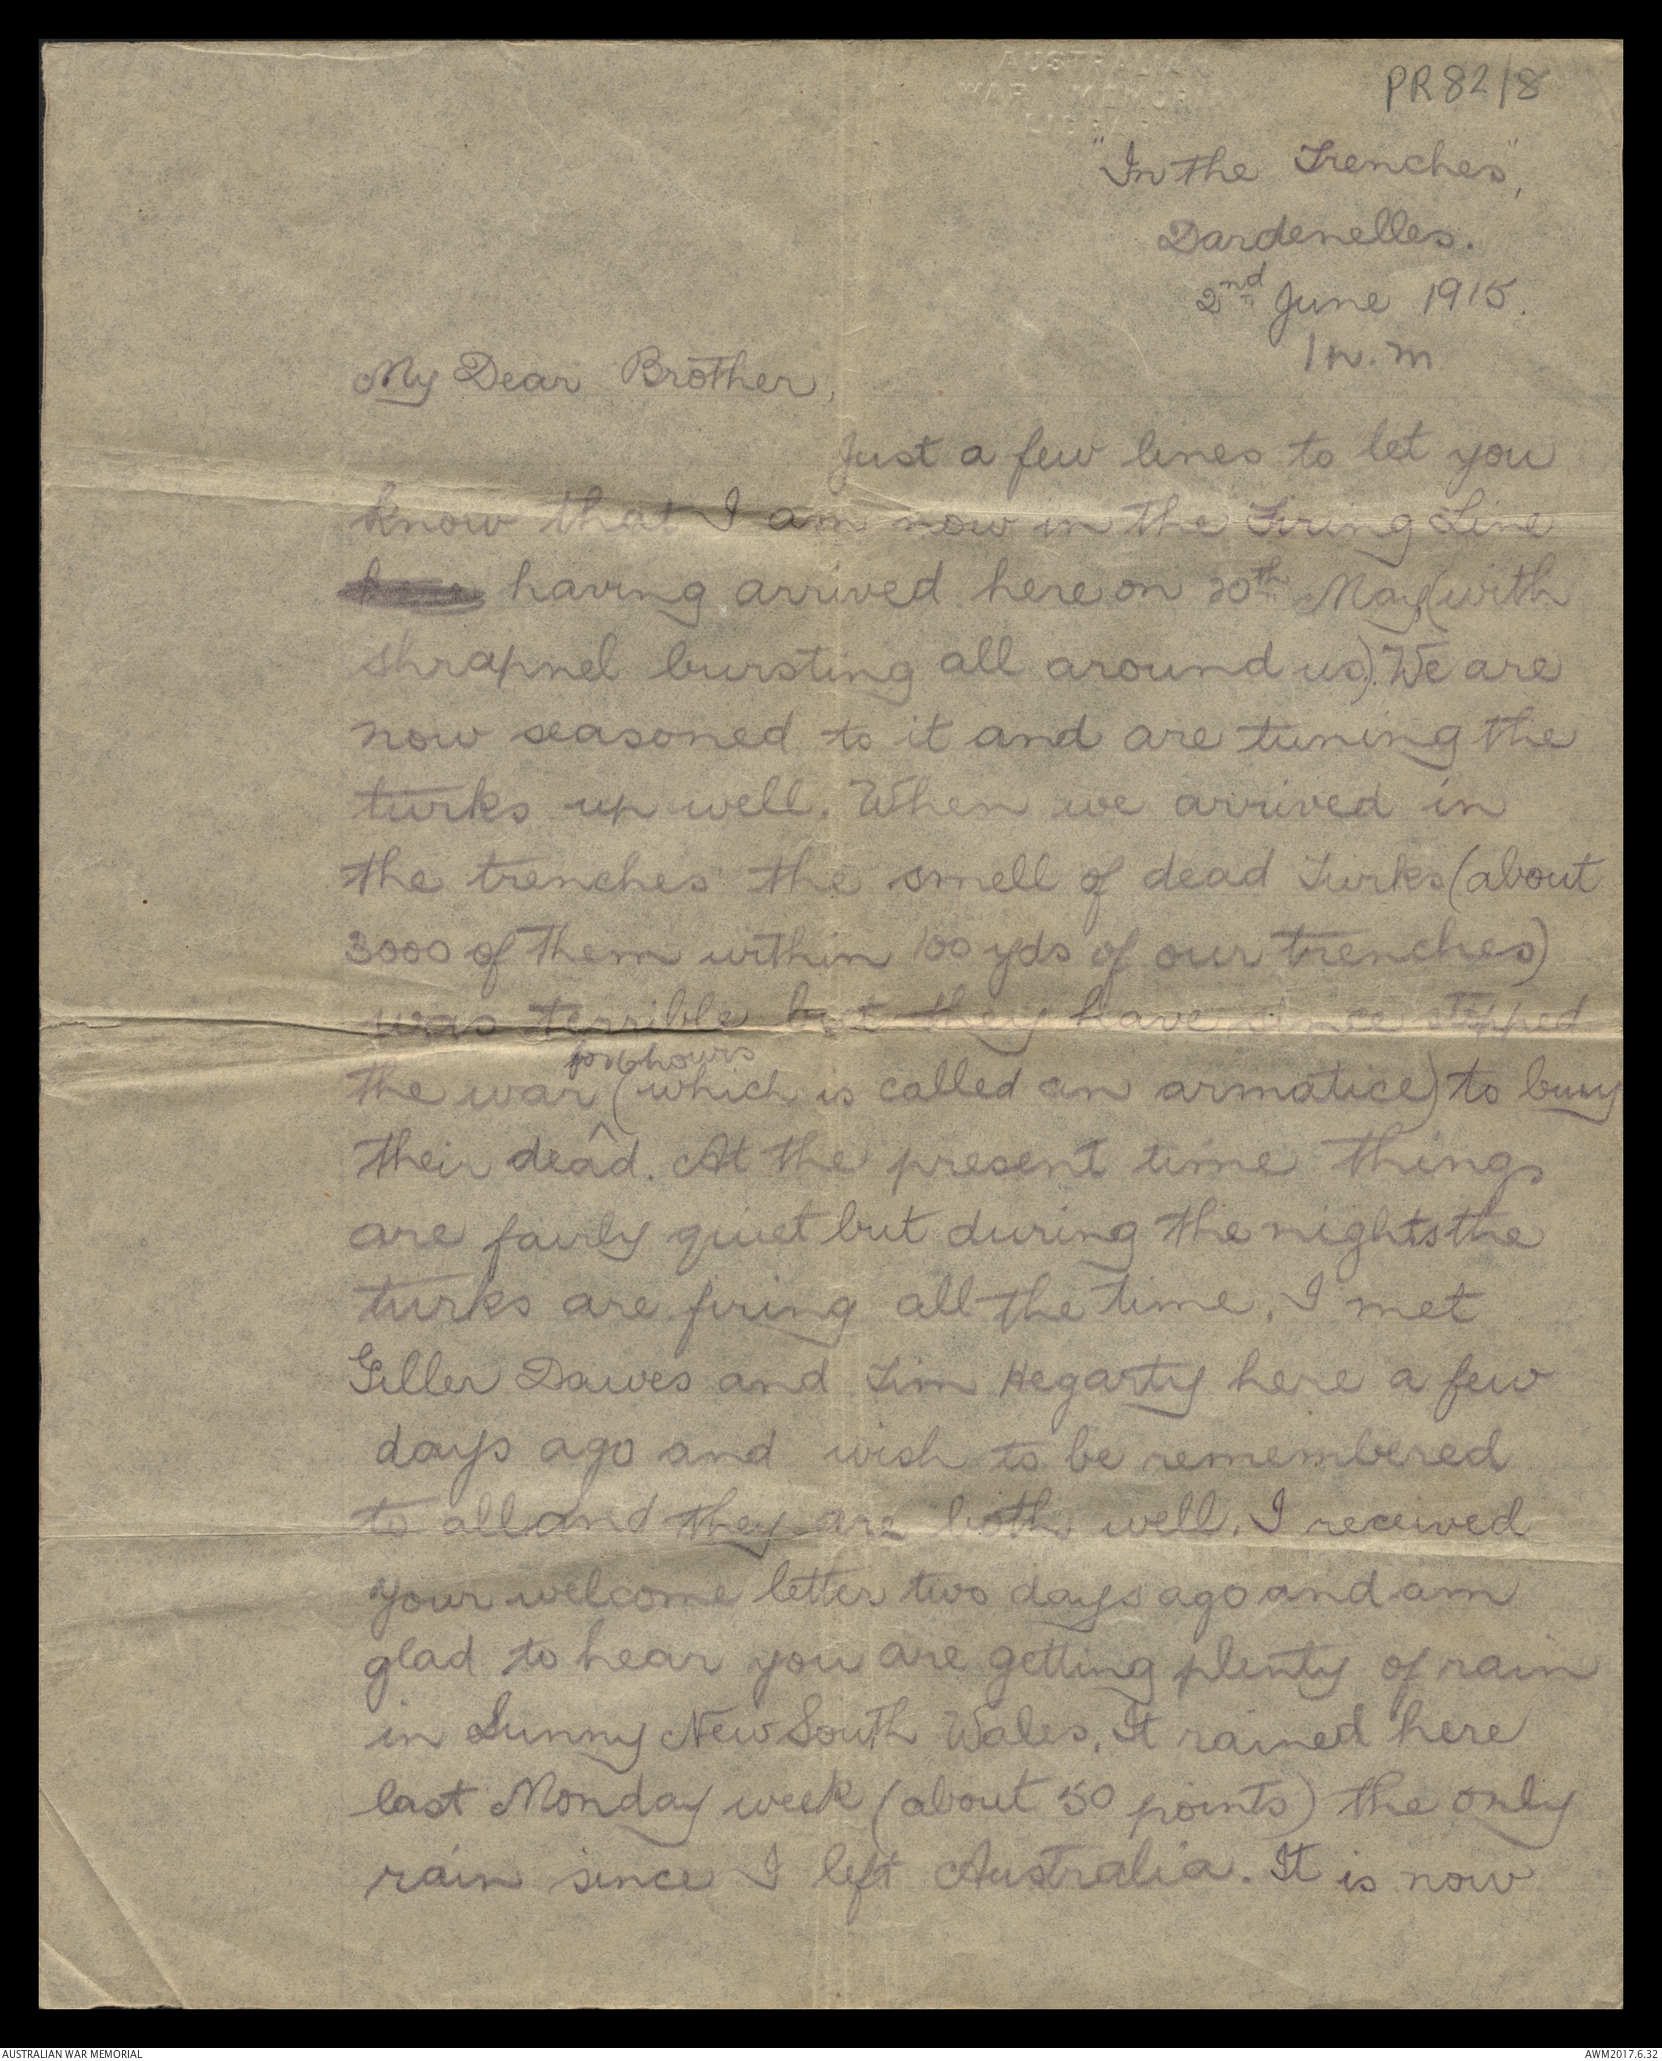 AUSTRALIAN
WAR MEMORIAL
LIBRARY
PR82/8
"In the Trenches",
Dardenelles.
2nd June 1915.
1 p.m
My Dear Brother,
Just a few lines to let you
know that I am now in the Firing Line
having arrived here on 20th May (with
shrapnel bursting all around us). We are
now seasoned to it and are tuning the
turks up well. When we arrived in
the trenches the smell of dead Turks (about
3000 of them within 100 yds of our trenches)
was terrible but they have since stopped
for 6 hours
the war (which is called an armatice) to bury
their dead. At the present time things
are fairly quiet but during the nights the
turks are firing all the time. I met
Giller Dawes and Tim Hegarty here a few
days ago and wish to be remembered
to all and they are both well. I received
your welcome letter two days ago and am
glad to hear you are getting plenty of rain
in Sunny New South Wales. It rained here
last Monday week (about 50 points) the only
rain since I left Australia. It is now
AUSTRALIAN WAR MEMORIAL
AWM2017.6.32